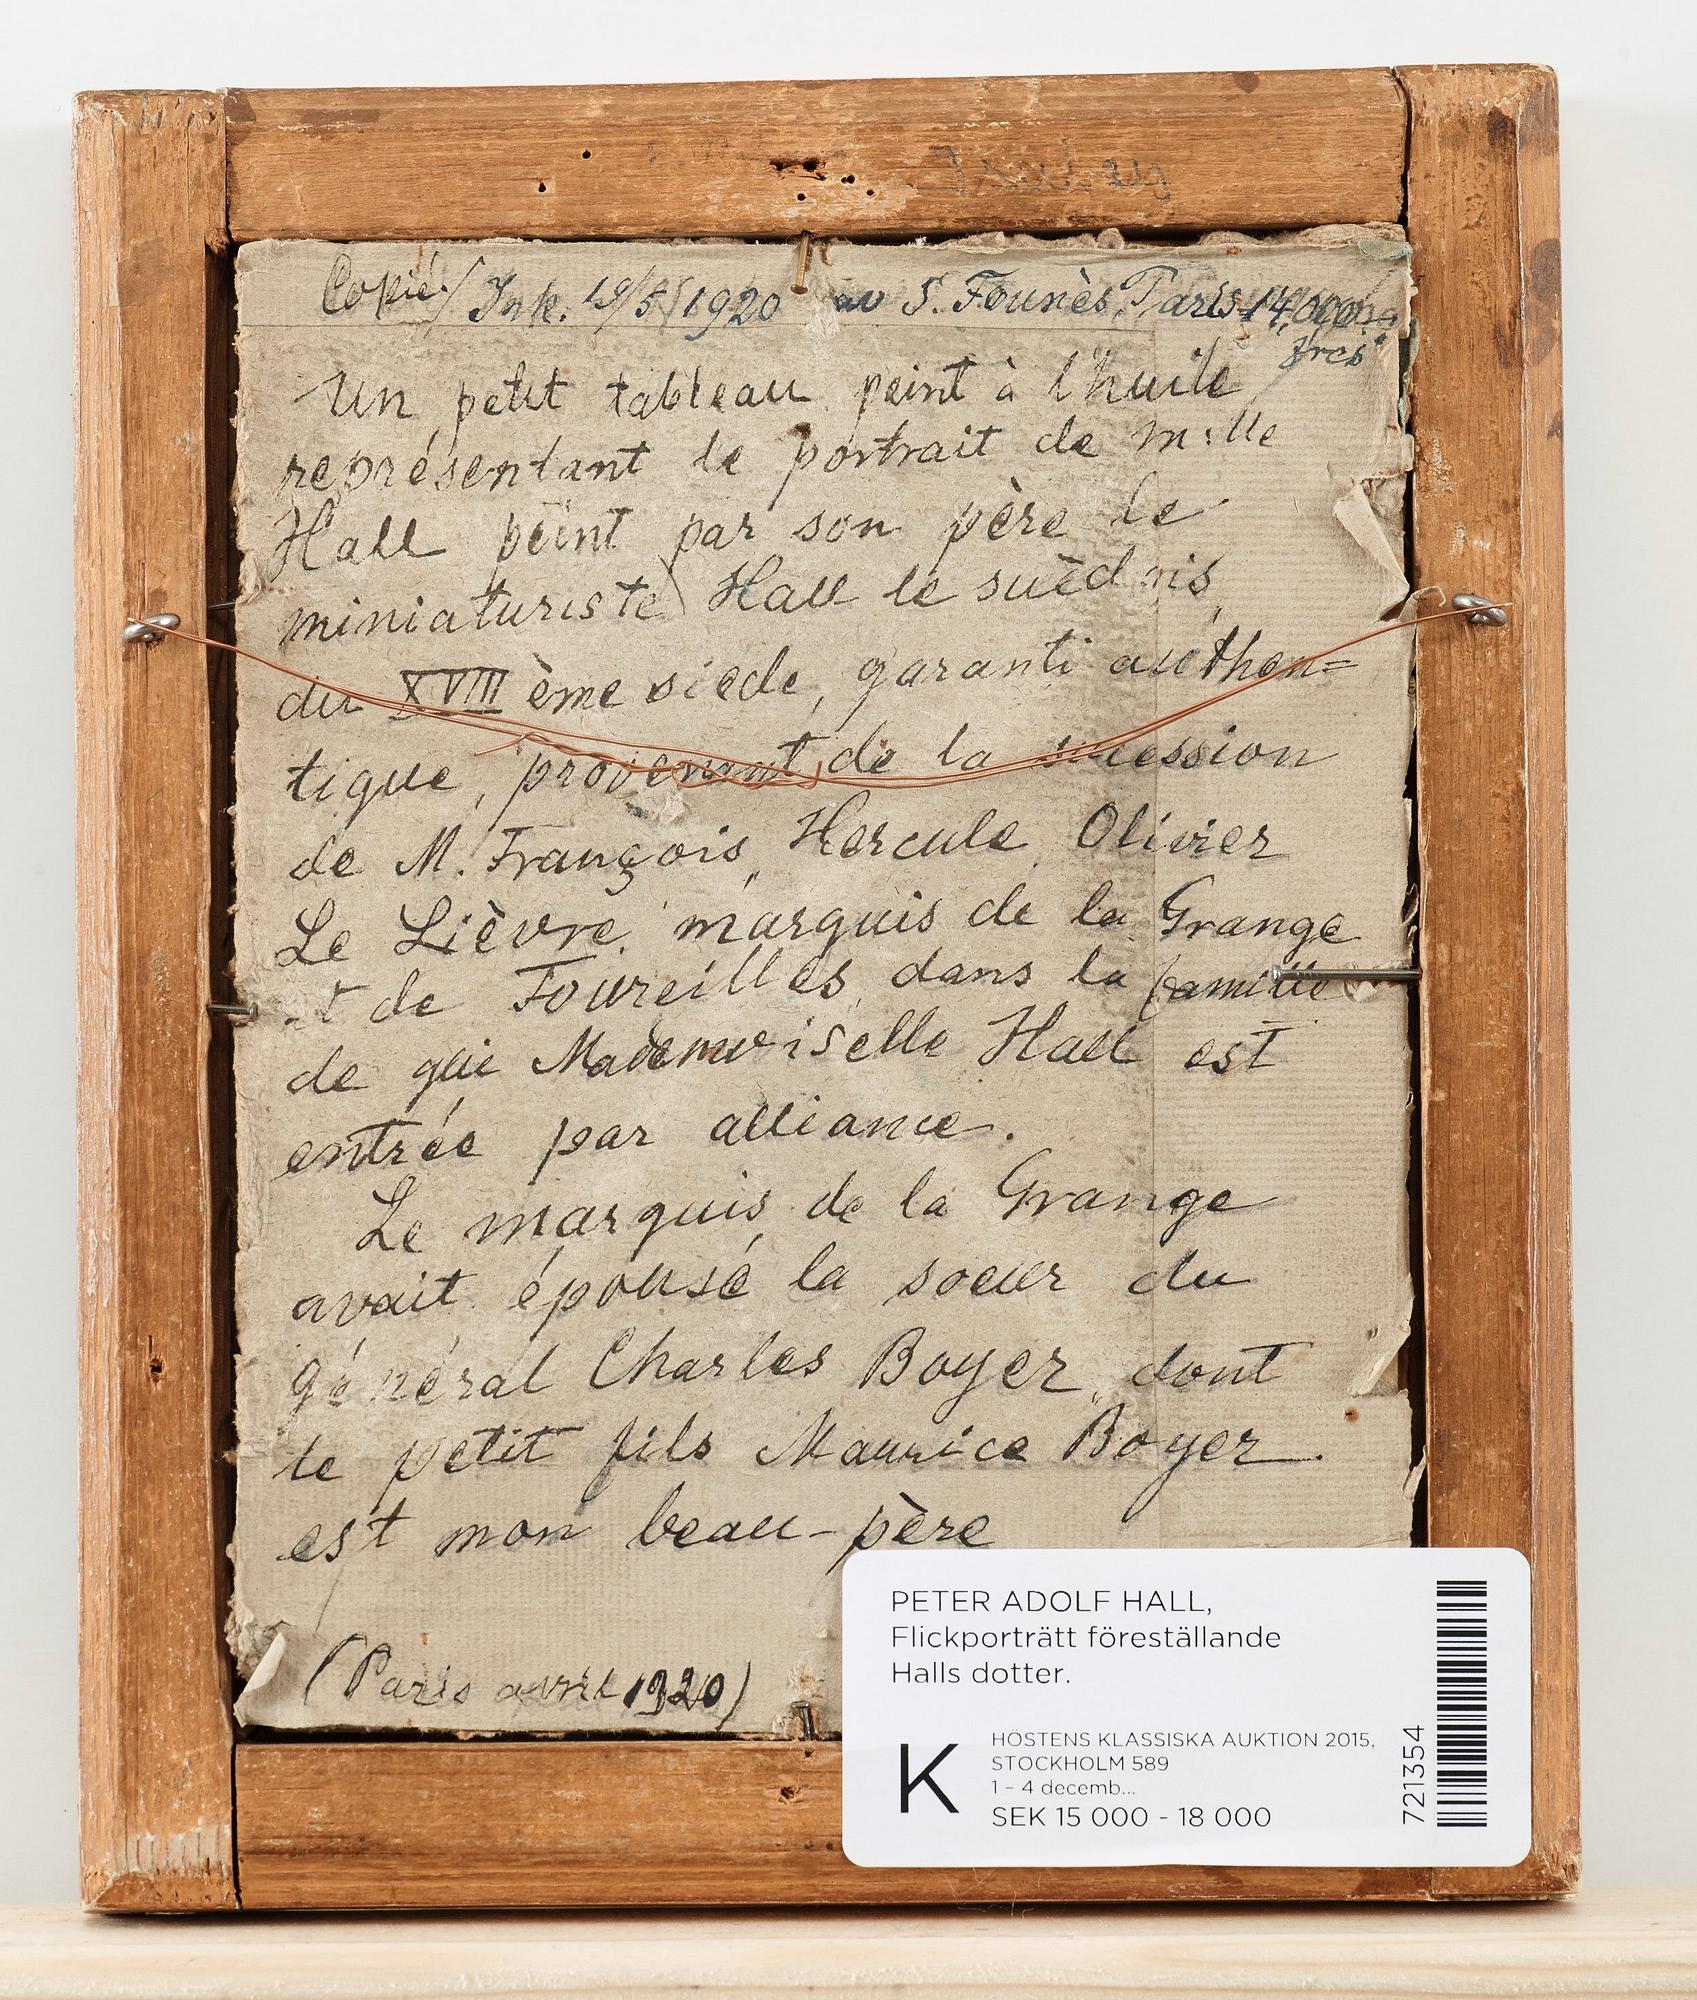 Copié/ Ink. 19/5 1920 av S. Founès, Paris 14,000
frcs
Un petit tableau peint à l'huile
représentant le portrait de m:lle
Hall peint par son père le
miniaturiste Hall le suèdois,
du XVIII ème siècle, garanti authen=
tique, provenant de la sucession
de M. François, Hercule, Olivier
Le Lièvre, marquis de la Grange
et de Foureilles, dans la famille
de qui Mademoiselle Hall est
entrée par alliance.
Le marquis de la Grange
avait épousé la soeur du
général Charles Boyer, dont
le petit fils Maurice Boyer.
est mon beau-père
(Paris avril 1920)
PETER ADOLF HALL,
Flickporträtt föreställande
Halls dotter.
K
HÖSTENS KLASSISKA AUKTION 2015,
STOCKHOLM 589
1 – 4 decemb...
SEK 15 000 - 18 000
721354